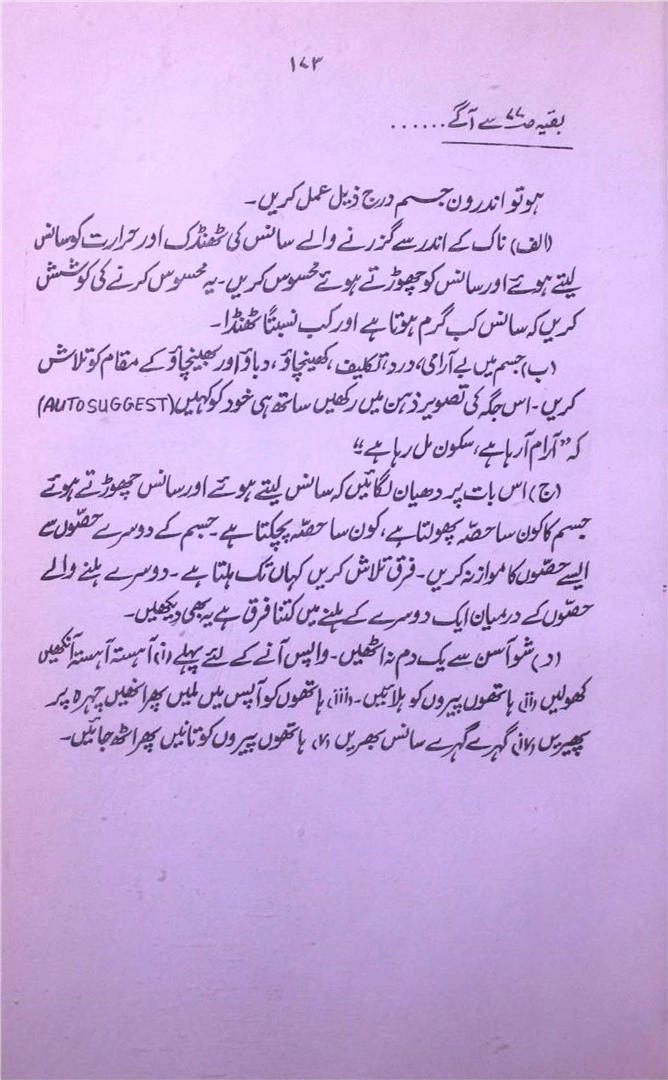 ۱۷۳
بقیہ صـ۷۷ سے آگے ......
ہو تو اندرون جسم درج ذیل عمل کریں۔
(الف) ناک کے اندر سے گزرنے والے سانس کی ٹھنڈک اور حرارت کو سانس
لیتے ہوئے اور سانس کو چھوڑتے ہوئے محسوس کریں۔ یہ محسوس کرنے کی کوشش
کریں کہ سانس کب گرم ہوتا ہے اور کب نسبتاً ٹھنڈا۔
(ب) جسم میں بے آرامی، درد، تکلیف، کھینچاؤ، دباؤ اور بھینچاؤ کے مقام کو تلاش
کریں۔ اس جگہ کی تصویر ذہن میں رکھیں ساتھ ہی خود کو کہیں (AUTOSUGGEST)
کہ "آرام آرہا ہے، سکون مل رہا ہے"
(ج) اس بات پر دھیان لگائیں کہ سانس لیتے ہوئے اور سانس چھوڑتے ہوئے
جسم کا کون سا حصّہ پھولتا ہے، کون سا حصّہ پچکتا ہے۔ جسم کے دوسرے حصّوں سے
ایسے حصّوں کا موازنہ کریں۔ فرق تلاش کریں کہاں تک ہلتا ہے۔ دوسرے ہلنے والے
حصّوں کے درمیان ایک دوسرے کے ہلنے میں کتنا فرق ہے یہ بھی دیکھیں۔
(د) شوآسن سے یک دم نہ اٹھیں۔ واپس آنے کے لئے پہلے (i) آہستہ آہستہ آنکھیں
کھولیں (ii) ہاتھوں پیروں کو ہلائیں۔ (iii) ہاتھوں کو آپس میں ملیں پھر انھیں چہرہ پر
پھیریں (iv) گہرے گہرے سانس بھریں (v) ہاتھوں پیروں کو تانیں پھر اٹھ جائیں۔